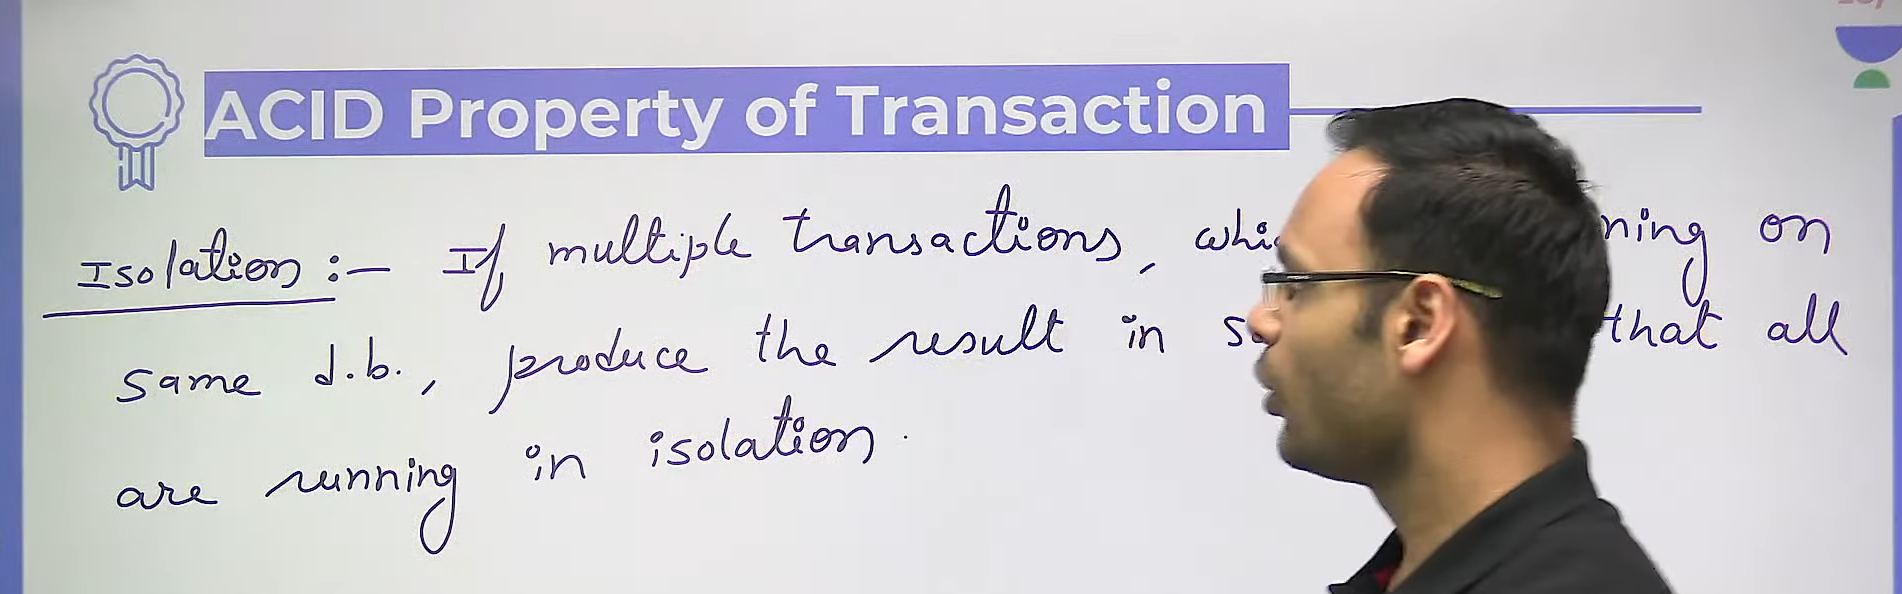 ACID Property of Transaction
Isolation :- If multiple transactions, on
same d.b., produce the result in that all
are running in isolation.